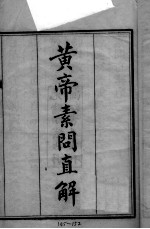 黄帝素問直解
145-152